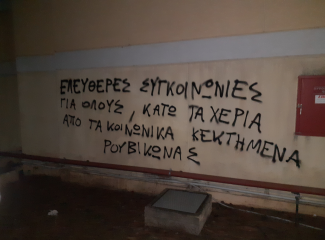 ΕΛΕΥΘΕΡΕΣ ΣΥΓΚΟΙΝΩΝΙΕΣ
ΓΙΑ ΟΛΟΥΣ, ΚΑΤΩ ΤΑ ΧΕΡΙΑ
ΑΠΟ ΤΑ ΚΟΙΝΩΝΙΚΑ ΚΕΚΤΗΜΕΝΑ
ΡΟΥΒΙΚΩΝΑΣ